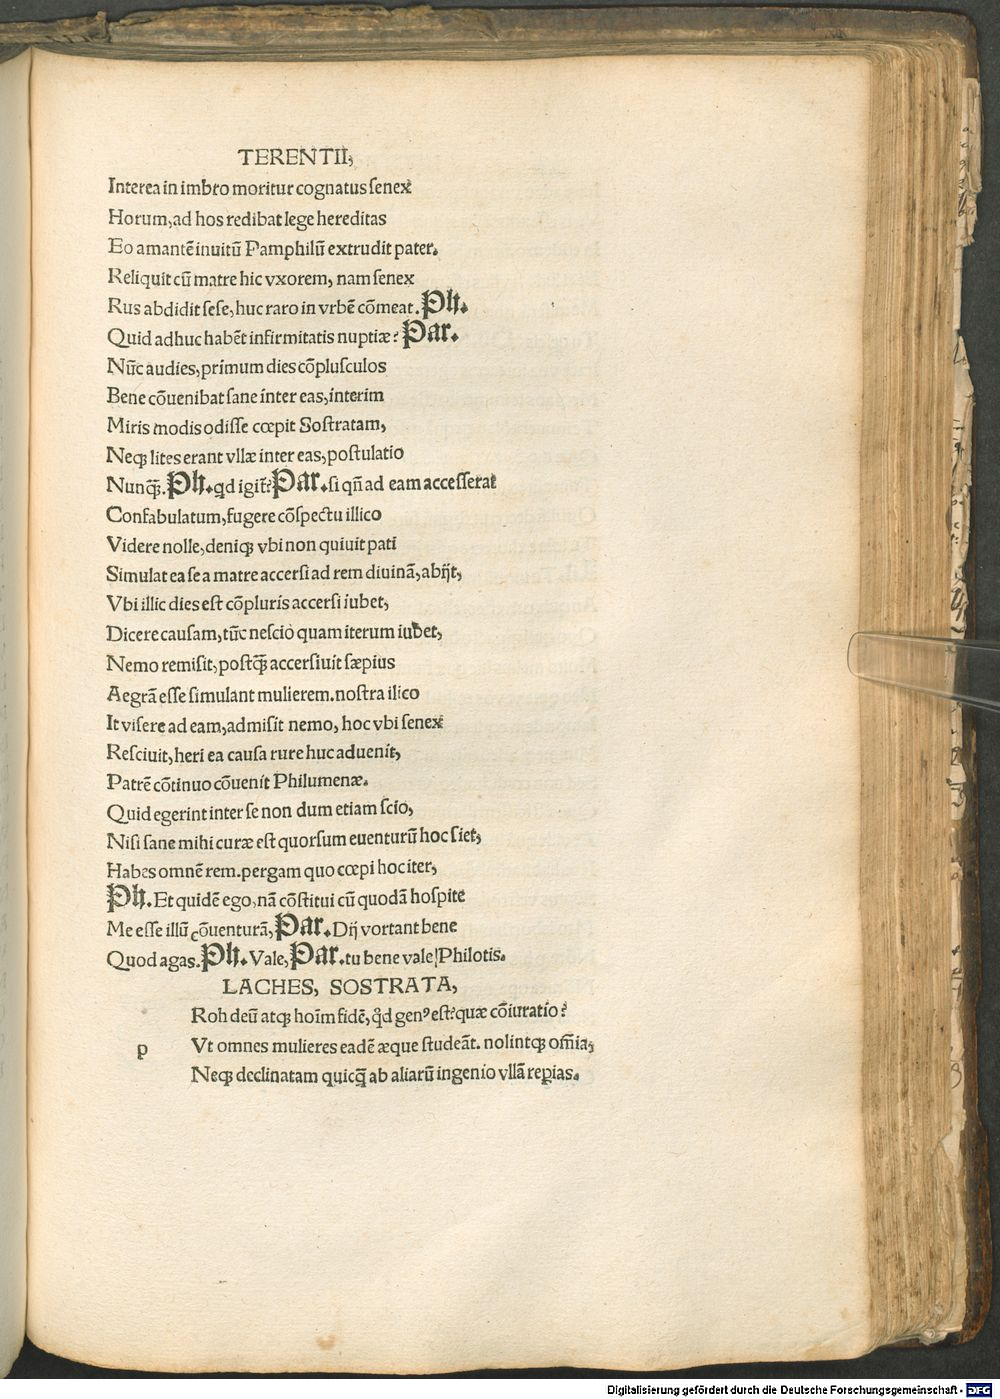 TERENTII,
Interea in imbro moritur cognatus ſenex
Horum,ad hos redibat lege hereditas
Eo amantē inuitū Pamphilū extrudit pater.
Reliquit cū matre hic vxorem, nam ſenex
Rus abdidit ſeſe, huc raro in vrbē cōmeat. Ph.
Quid adhuc habēt infirmitatis nuptiæ? Par.
Nūc audies, primum dies cōpluſculos
Bene cōuenibat ſane inter eas, interim
Miris modis odiſſe cœpit Soſtratam,
Neqꝫ lites erant vllæ inter eas, poſtulatio
Nunq̄ꝫ. Ph. qd igit̄? Par. ſi qn̄ ad eam acceſſerat
Confabulatum, fugere cōſpectu illico
Videre nolle, deniqꝫ vbi non quiuit pati
Simulat ea ſe a matre accerſi ad rem diuinā, abijt,
Vbi illic dies eſt cōpluris accerſi iubet,
Dicere cauſam, tūc neſcio quam iterum iubet,
Nemo remiſit, poſtq̄ꝫ accerſiuit ſæpius
Aegrā eſſe ſimulant mulierem. noſtra ilico
It viſere ad eam, admiſit nemo, hoc vbi ſenex
Reſciuit, heri ea cauſa rure huc aduenit,
Patrē cōtinuo cōuenit Philumenæ.
Quid egerint inter ſe non dum etiam ſcio,
Niſi ſane mihi curæ eſt quorſum euenturū hoc ſiet,
Habes omnē rem. pergam quo cœpi hoc iter,
Ph. Et quidē ego, nā cōſtitui cū quodā hoſpite
Me eſſe illū cōuenturā, Par. Dij vortant bene
Quod agas. Ph. Vale, Par. tu bene vale Philotis.
LACHES, SOSTRATA,
Roh deū atqꝫ hoīm fidē, qd genꝰ eſt? quæ cōiuratio?
p Vt omnes mulieres eadē æque ſtudeāt. nolintqꝫ oīa,
Neqꝫ declinatam quicq̄ ab aliarū ingenio vllā reꝑias.
Digitalisierung gefördert durch die Deutsche Forschungsgemeinschaft - DFG